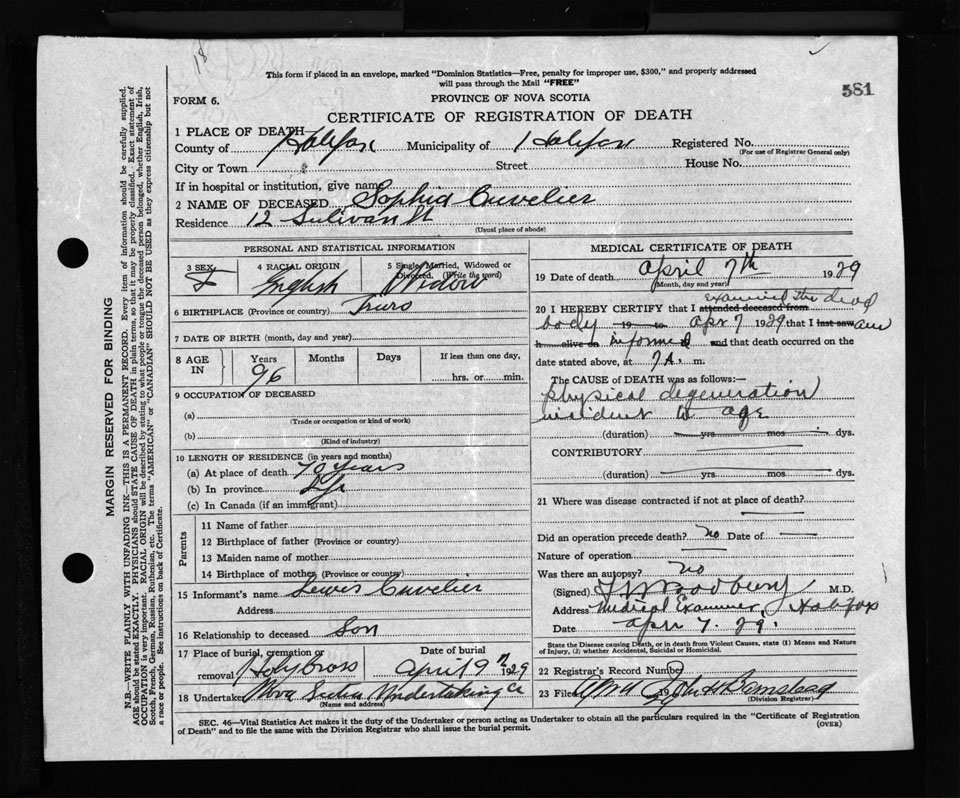 18
This form if placed in an envelope, marked "Dominion Statistics—Free, penalty for improper use, $300," and properly addressed
will pass through the Mail "FREE"
581
FORM 6.
PROVINCE OF NOVA SCOTIA
CERTIFICATE OF REGISTRATION OF DEATH
MARGIN RESERVED FOR BINDING
N.B.—WRITE PLAINLY WITH UNFADING INK—THIS IS A PERMANENT RECORD. Every item of information should be carefully supplied.
AGE should be stated EXACTLY. PHYSICIANS should STATE CAUSE OF DEATH in plain terms, so that it may be properly classified. Exact statement of
OCCUPATION is very important. RACIAL ORIGIN will be described by stating to what people or tongue the deceased person belonged, whether English, Irish,
Scotch, French, German, Russian, Ruthenian, etc. The terms "AMERICAN" or "CANADIAN" SHOULD NOT BE USED as they express citizenship but not
a race or people. See instructions on back of Certificate.
1 PLACE OF DEATH
County of Halifax Municipality of Halifax Registered No.
(For use of Registrar General only)
City or Town Street House No.
If in hospital or institution, give name
2 NAME OF DECEASED Sophia Cuvelier
Residence 12 Sulivan St
(Usual place of abode)
PERSONAL AND STATISTICAL INFORMATION
3 SEX F
4 RACIAL ORIGIN English
5 Single, Married, Widowed or Divorced. (Write the word) Widow
6 BIRTHPLACE (Province or country) Truro
7 DATE OF BIRTH (month, day and year)
8 AGE IN Years 96 Months Days If less than one day, hrs. or min.
9 OCCUPATION OF DECEASED
(a)
(Trade or occupation or kind of work)
(b)
(Kind of industry)
10 LENGTH OF RESIDENCE (in years and months)
(a) At place of death 79 years
(b) In province
(c) In Canada (if an immigrant)
Parents
11 Name of father
12 Birthplace of father (Province or country)
13 Maiden name of mother
14 Birthplace of mother (Province or country)
15 Informant's name Lewis Cuvelier
Address
16 Relationship to deceased Son
17 Place of burial, cremation or removal Holy Cross Date of burial April 9th 1929
18 Undertaker Nova Scotia Undertaking Co
(Name and address)
MEDICAL CERTIFICATE OF DEATH
19 Date of death April 7th 1929
(Month, day and year)
20 I HEREBY CERTIFY that I attended deceased from examined the dead
body 19 to Apr 7 1929 that I last saw am
h alive on informed and that death occurred on the
date stated above, at 7 A. m.
The CAUSE OF DEATH was as follows:—
Physical degeneration
incident to age
(duration) yrs mos dys.
CONTRIBUTORY
(duration) yrs mos dys.
21 Where was disease contracted if not at place of death?
Did an operation precede death? no Date of
Nature of operation
Was there an autopsy? no
(Signed) M.D.
Address Medical Examiner, Halifax
Date Apr 7. 29.
State the Disease causing Death, or in death from Violent Causes, state (1) Means and Nature
of Injury, (2) whether Accidental, Suicidal or Homicidal.
22 Registrar's Record Number
23 Filed 19 29 John H Barnstead
(Division Registrar)
SEC. 46—Vital Statistics Act makes it the duty of the Undertaker or person acting as Undertaker to obtain all the particulars required in the "Certificate of Registration
of Death" and to file the same with the Division Registrar who shall issue the burial permit.
(OVER)